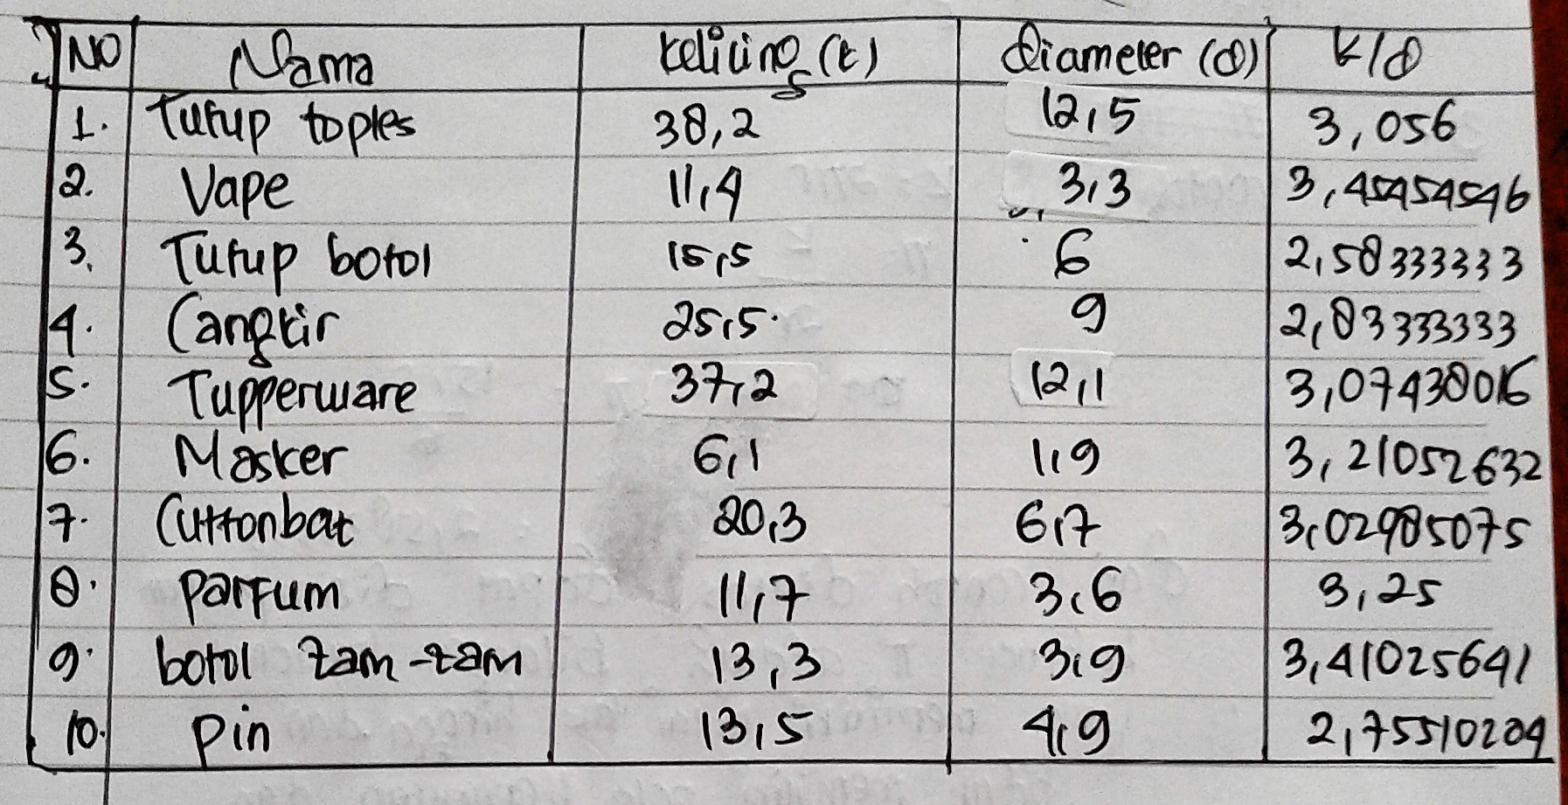 NO Nama keliling (k) diameter (d) k/d
1. Tutup toples 38,2 12,5 3,056
2. Vape 11,4 3,3 3,45454546
3. Tutup botol 15,5 6 2,58333333
4. Cangkir 25,5 9 2,83333333
5. Tupperware 37,2 12,1 3,07438016
6. Masker 6,1 1,9 3,21052632
7. Cuttonbat 20,3 6,7 3,02985075
8. parfum 11,7 3,6 3,25
9. botol zam-zam 13,3 3,9 3,41025641
10. pin 13,5 4,9 2,75510204